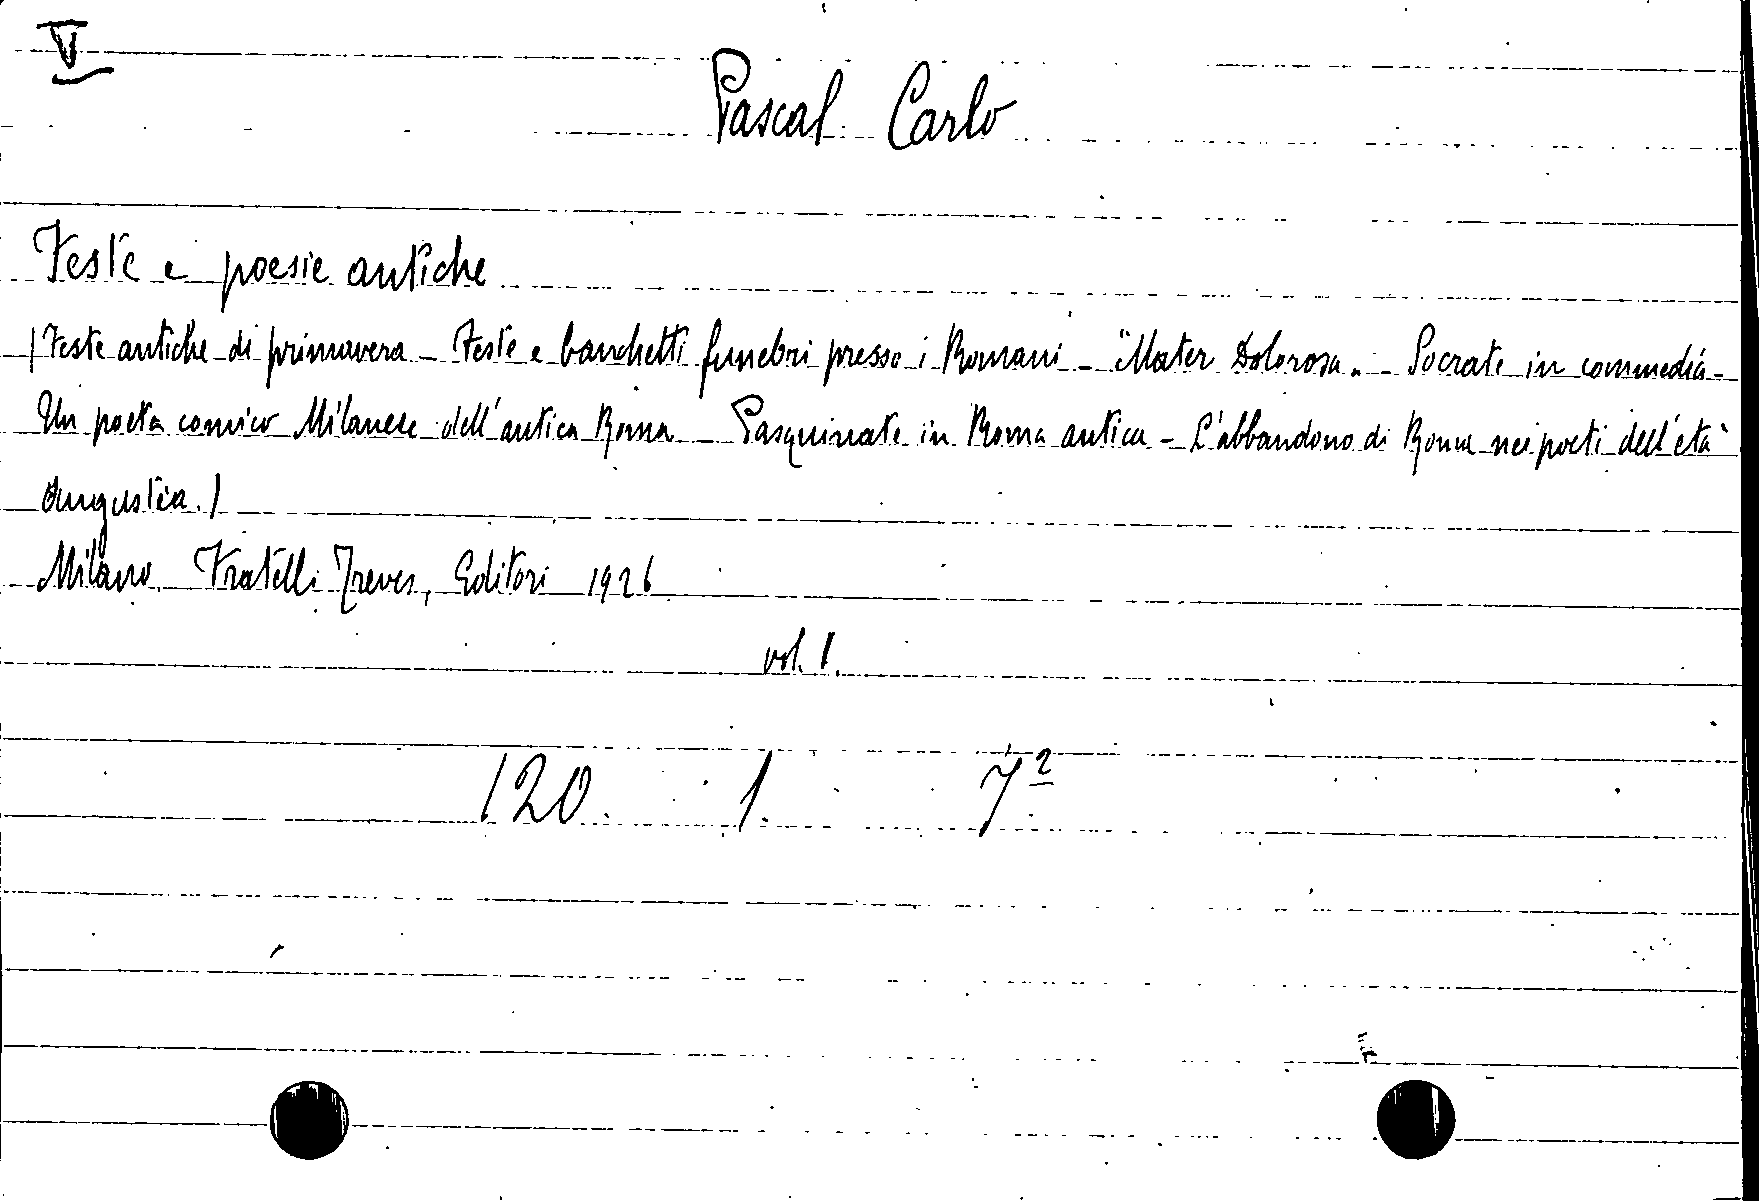 V
Pascal Carlo
Feste e poesie antiche
(Feste antiche di primavera - Feste e banchetti funebri presso i Romani - "Mater Dolorosa" - Socrate in commedia -
Un poeta comico Milanese dell'antica Roma - Pasquinate in Roma antica - L'abbandono di Roma nei poeti dell'età
Augustea.)
Milano Fratelli Treves, Editori 1926
vol. 1.
120. 1. 7²